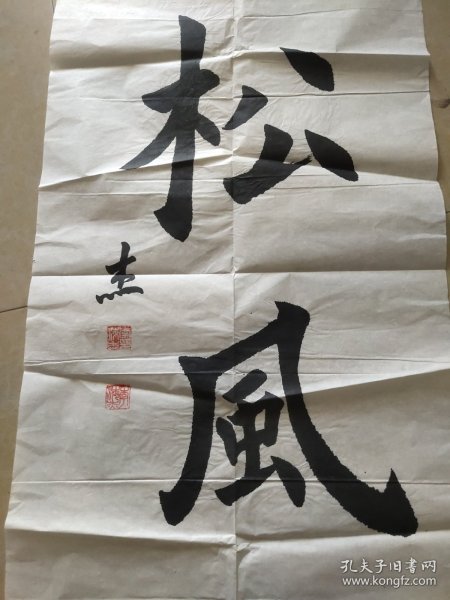 松風
杰
孔夫子旧书网
www.kongfz.com